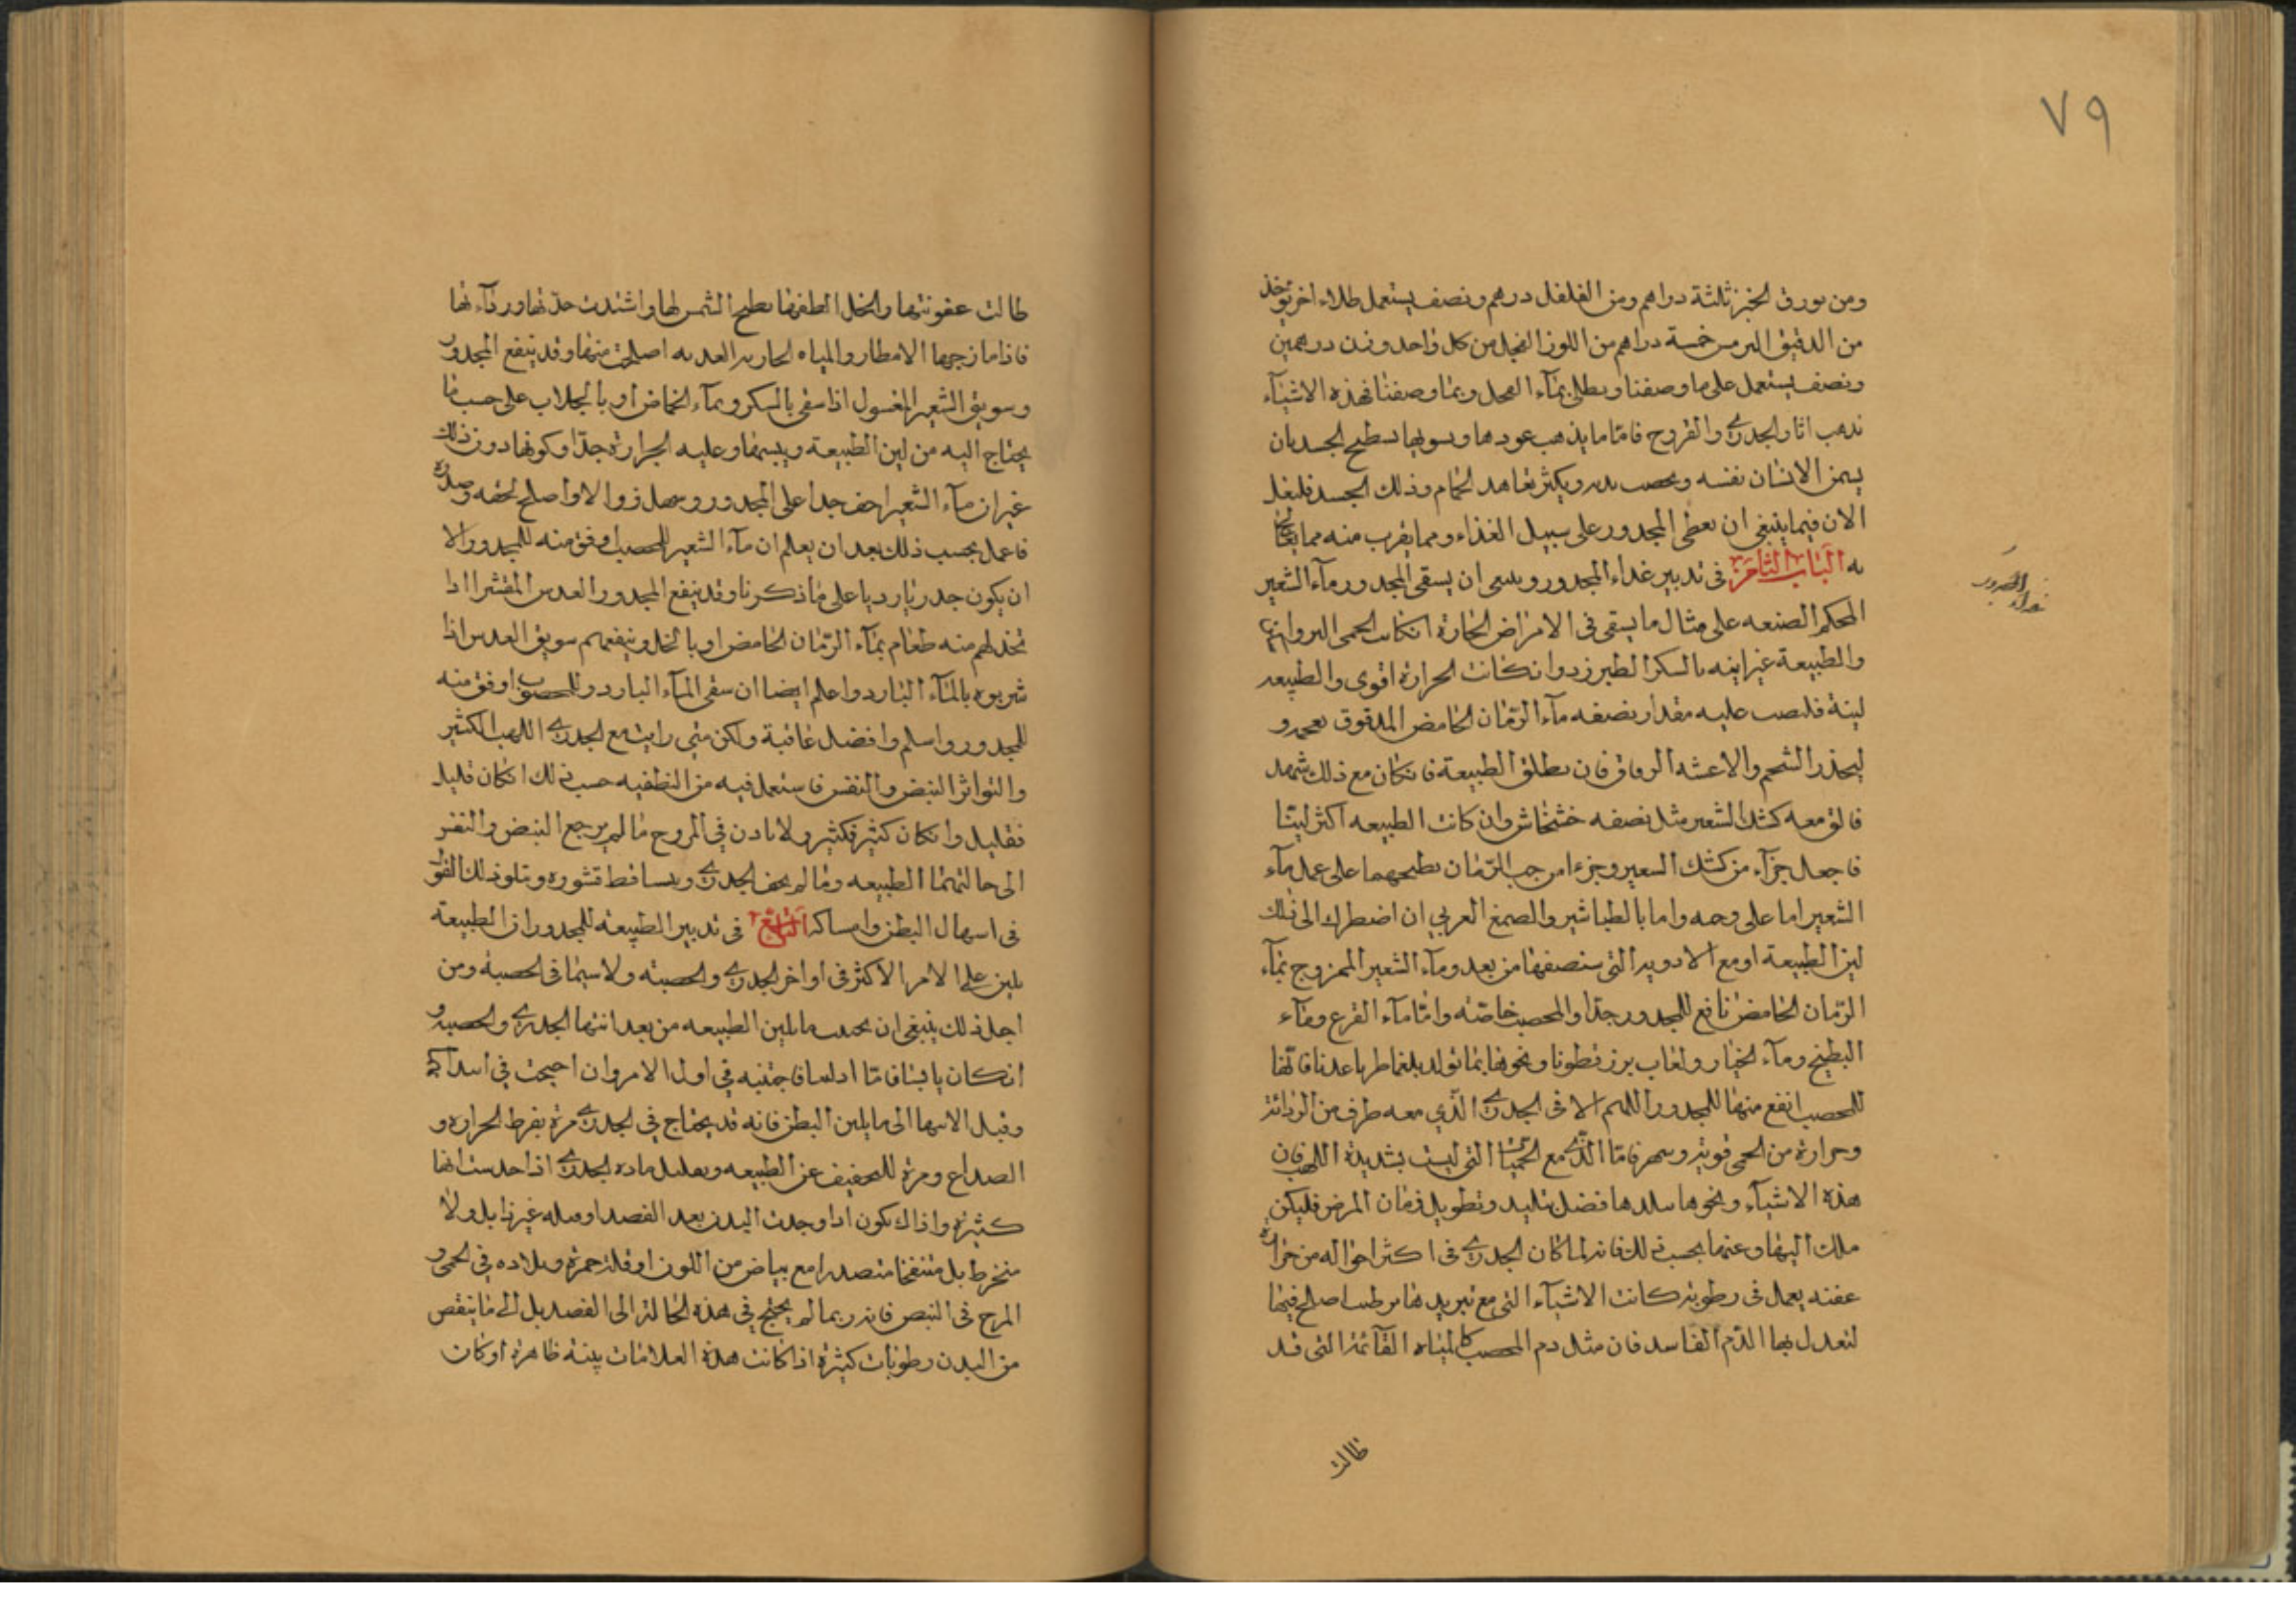 ٧٩
ومن بورق الخبز ثلثة دراهم ومن الفلفل درهم ونصف يستعمل طلاء اخر يوخذ
من الدقيق الترمس خمسة دراهم من اللوز الفجل من كل واحد وزن درهمين
ونصف يستعمل على ما وصفنا ويطلى بماء الفجل وبما وصفنا فهذه الاشيآء
تذهب اثار الجدري والقروح فاما ما يذهب عودها ويسويها بسطح الجسد بان
يسمن الانسان نفسه ويخصب بدنه ويكثر تعاهد الحمام وذلك الجسد فلنقل
الان فيما ينبغي ان يعطى المجدور على سبيل الغذاء ومما يقرب منه مما يعالج
به الباب الثامن في تدبير غداء المجدور وينبغي ان يسقى المجدور مآء الشعير
المحكم الصنعه على مثال ما يسقى في الامراض الحارة ان كانت الحمى
والطبيعة غير لينه بالسكر الطبرزد وان كانت الحرارة اقوى والطبيعه
لينة فليصب عليه مقدار نصفه مآء الرمان الحامض المدقوق بعجمه و
ليحذر الشحم والاغشيه الرقاق فان يطلق الطبيعة فان كان مع ذلك سهر
فالق معه كشك الشعير مثل نصفه خشخاش وان كانت الطبيعه اكثر لينا
فاجعل جزآء من كشك الشعير وجزءا من حب الرمان يطبخهما على عمل مآء
الشعير اما على وجهه واما بالطباشير والصمغ العربي ان اضطرك الى ذلك
لين الطبيعة او مع الادويه التي سنصفها من بعد ومآء الشعير الممزوج بمآء
الرمان الحامض نافع للمجدور جدا والمحصب خاصته واما مآء القرع ومآء
البطيخ ومآء الخيار ولعاب بزر قطونا ونحوها بما تولد بلغما طريا عذبا فانها
للمحصب انفع منها للمجدور اللهم الا في الجدري الذي معه طرف من الردائة
وحرارة من الحمى قوية وسهر فاما الذي مع الحميات التي ليست بشديدة اللهب فان
هذه الاشيآء ونحوها فضل تبليد وتطويل زمان المرض فليكن
ملك اليها وعنها بحسب ذلك فانه لما كان الجدري في اكثر احواله من حرارة
عفنه يعمل في رطوبة كانت الاشيآء التي مع تبريدها ترطب اصلح فيها
لتعدل بها الدم الفاسد فان مثل دم المحصب كالمياه القآئمة التي قد
طالت
غداء المجدور
طالت عفونتها وانحل الطفها بطبخ الشمس لها واشتدت حدتها وردآءتها
فاذا مازجها الامطار والمياه الجاريه العذبه اصلحت منها وقد ينفع المجدور
وسويق الشعير المغسول اذا سقى بالسكر وبمآء الحماض او بالجلاب على حسب ما
يحتاج اليه من لين الطبيعة ويبسها وعليه الحرارة جدا وكونها دون ذلك
غير ان مآء الشعير اخف جدا على المجدور واصلح لحلقه وصدره
فاعمل بحسب ذلك بعد ان يعلم ان مآء الشعير للمحصب اوفق منه للمجدور الا
ان يكون جدريا رديا على ما ذكرنا وقد ينفع المجدور العدس المقشر اذا
تخذ لهم منه طعام بمآء الرمان الحامض او بالخل وينفعهم سويق العدس اذا
شربوه بالمآء البارد واعلم ايضا ان سقى المآء البارد للمحصوب اوفق منه
للمجدور واسلم وافضل عاقبة ولكن متى رايت مع الجدري اللهب الكثير
والتواتر النبض والنفس فاستعمل فيه من التطفيه حسب ذلك ان كان قليل
فقليل وان كان كثير فكثير ولا تاذن في الفروج ما لم يرجع النبض والنفس
الى حالتهما الطبيعه وما لم يجف الجدري ويتساقط قشوره ويتلو ذلك القول
في اسهال البطن وامساكه التاسع في تدبير الطبيعه للمجدور ان الطبيعة
يلين على الامر الاكثر في اواخر الجدري والحصبته ولا سيما في الحصبة ومن
اجل ذلك ينبغي ان يجتنب ما يلين الطبيعه من بعد انتها الجدري والحصبه و
ان كان يابسا فاما اذا لسا فاجتنبه في اول الامر وان احتجت في ابتدائه
وقبل الانتها الى ما يلين البطن فانه قد يحتاج في الجدري مرة بفرط الحرارة و
الصداع ومرة للتخفيف عن الطبيعه وبتقليل مادة الجدري اذا حدست انها
كثيرة واذاك يكون اذا وجدت البدن بعد الفصد او قبله غير ذابل ولا
منخرط بل منتفخا مع بياض من اللون او قلة حمرة وبلاده في الحمى و
المرج في النبض فانه ربما لم يحتج في هذه الحالة الى الفصد بل الى ما ينقص
من البدن رطوبات كثيرة اذا كانت هذه العلامات بينه ظاهرة او كان